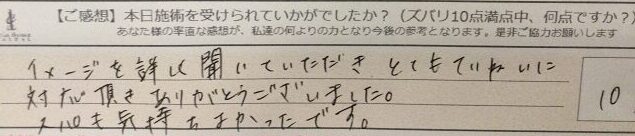 【ご感想】本日施術を受けられていかがでしたか?(ズバリ10点満点中、何点ですか?)
あなた様の率直な感想が、私達の何よりの力となり今後の参考となります。是非ご協力お願いします
イメージを詳しく聞いていただき とてもていねいに
対応頂きありがとうございました。
スパも気持ちよかったです。
10